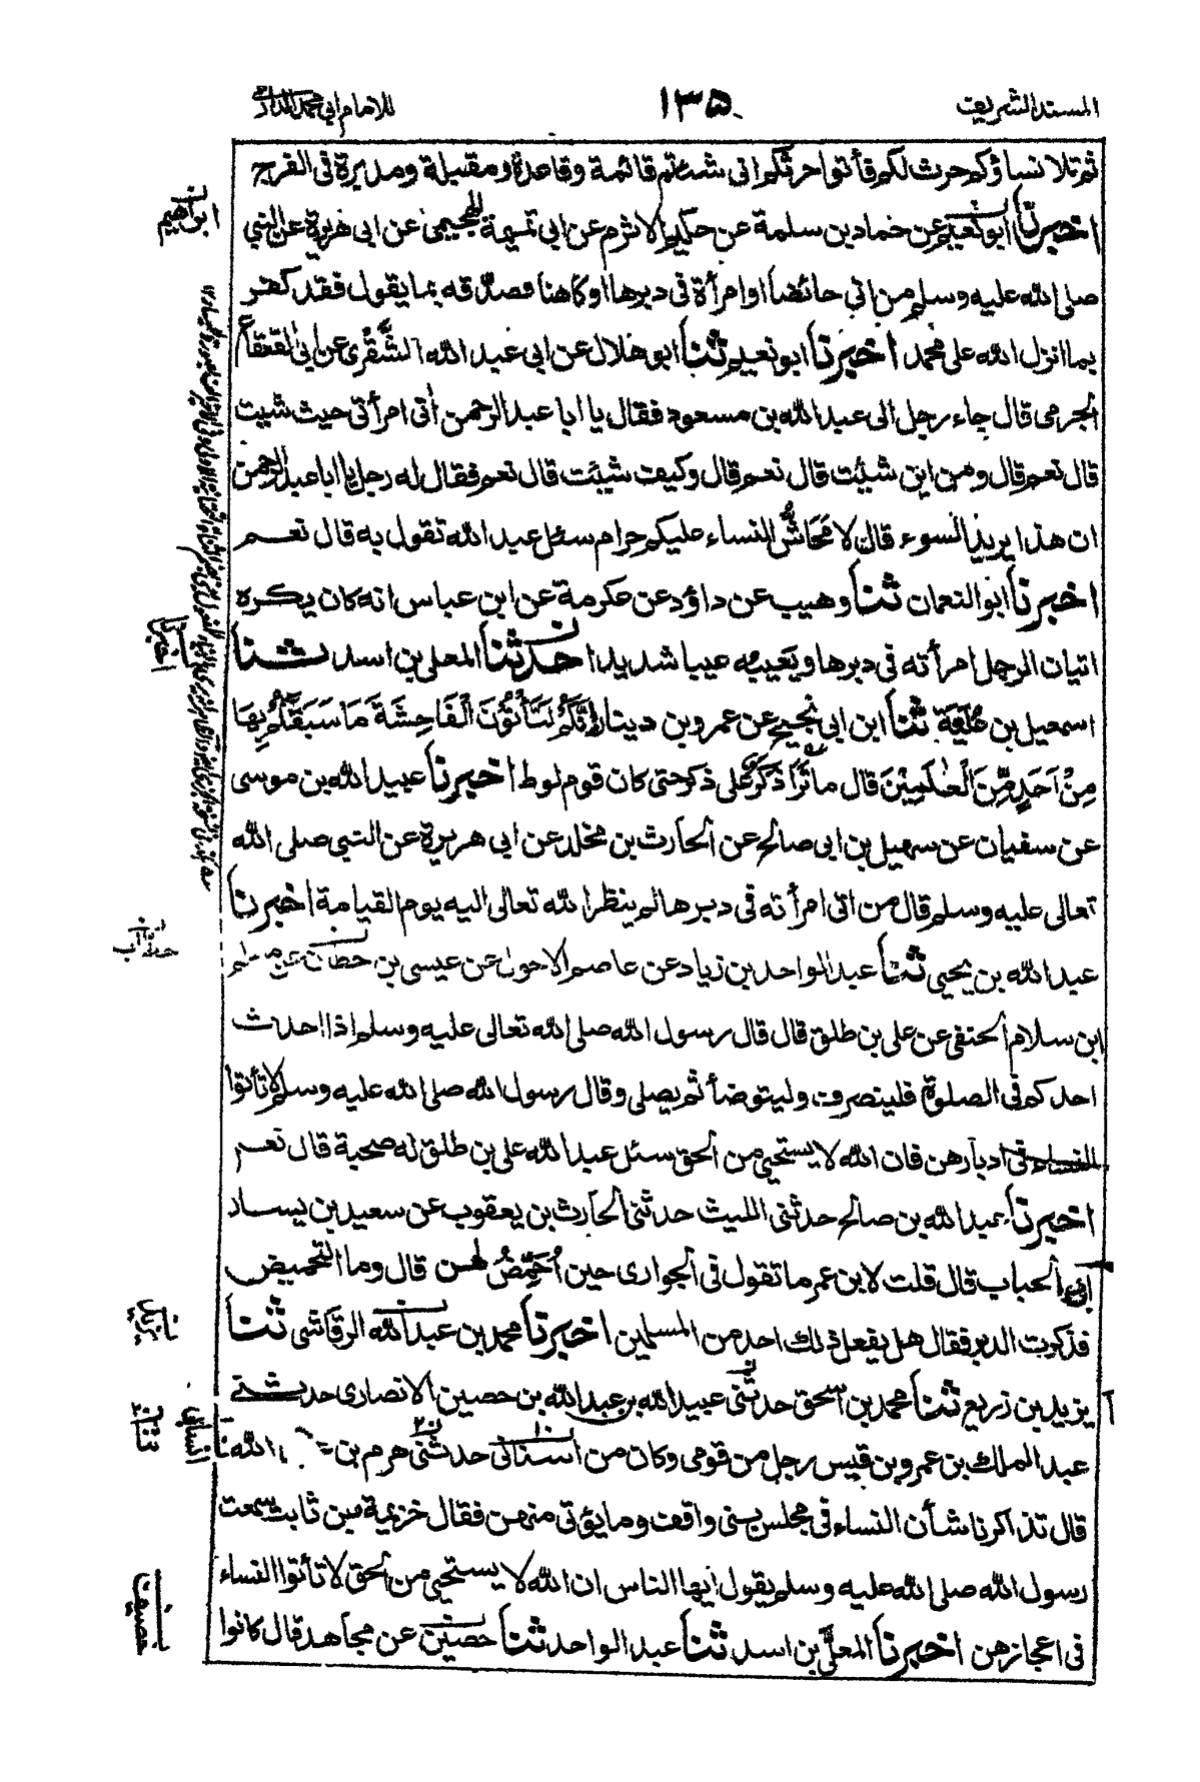 المسند الشريف ١٣٥ للامام ابي محمد الدارمي
ثم تلا نساؤكم حرث لكم فأتوا حرثكم انى شئتم قائمة وقاعدة ومقبلة ومدبرة فى الفرج
اخبرنا ابو نعيم عن حماد بن سلمة عن حكيم الاثرم عن ابى تميمة الهجيمى عن ابى هريرة عن النبي
صلى الله عليه وسلم من اتى حائضا او امرأة فى دبرها او كاهنا فصدقه بما يقول فقد كفر
بما انزل الله على محمد اخبرنا ابو نعيم ثنا ابو هلال عن ابى عبد الله الشَّقْرى عن ابى القعقاع
الجرمى قال جاء رجل الى عبد الله بن مسعود فقال يا ابا عبد الرحمن أتى امرأتى حيث شيت
قال نعم قال ومن اين شئت قال نعم قال وكيف شئت قال نعم فقال له رجل يا ابا عبد الرحمن
ان هذا يريد السوء قال لا مَحَاشُّ النساء عليكم حرام سئل عبد الله تقول به قال نعم
اخبرنا ابو النعمان ثنا وهيب عن داؤد عن عكرمة عن ابن عباس انه كان يكره
اتيان الرجل امرأته فى دبرها ويعيبه عيبا شديدا حدثنا المعلى بن اسد ثنا
اسمعيل بن عُلَيّة ثنا ابن ابى نجيح عن عمرو بن دينار اِنَّكُمْ لَتَأْتُوْنَ الْفَاحِشَةَ مَا سَبَقَكُمْ بِهَا
مِنْ اَحَدٍ مِّنَ الْعٰلَمِيْنَ قال ما نَزَا ذَكَرٌ على ذكر حتى كان قوم لوط اخبرنا عبيد الله بن موسى
عن سفيان عن سهيل بن ابى صالح عن الحارث بن مخلد عن ابى هريرة عن النبى صلى الله
تعالى عليه وسلم قال من اتى امرأته فى دبرها لم ينظر الله تعالى اليه يوم القيامة اخبرنا
عبد الله بن يحيى ثنا عبد الواحد بن زياد عن عاصم الاحول عن عيسى بن حطان عن مسلم
ابن سلام الحنفى عن على بن طلق قال قال رسول الله صلى الله تعالى عليه وسلم اذا احدث
احدكم فى الصلوة فلينصرف وليتوضأ ثم يصلى وقال رسول الله صلى الله عليه وسلم لا تأتوا
النساء فى ادبارهن فان الله لا يستحيى من الحق سئل عبد الله على بن طلق له صحبة قال نعم
اخبرنا عبد الله بن صالح حدثنى الليث حدثنى الحارث بن يعقوب عن سعيد بن يسار
ابى الحباب قال قلت لابن عمر ما تقول فى الجوارى حين اُحَمِّضُ لهن قال وما التحميض
فذكرت الدبر فقال هل يفعل ذلك احد من المسلمين اخبرنا محمد بن عبد الله الرقاشى ثنا
يزيد بن زريع ثنا محمد بن اسحق حدثنى عبيد الله بن عبد الله بن حصين الانصارى حدثنى
عبد الملك بن عمرو بن قيس رجل من قومى وكان من اسنانى حدثنى هرمى بن الله
قال تذاكرنا شأن النساء فى مجلس بنى واقف وما يؤتى منهن فقال خزيمة بن ثابت سمعت
رسول الله صلى الله عليه وسلم يقول ايها الناس ان الله لا يستحيى من الحق لا تأتوا النساء
فى اعجازهن اخبرنا المعلى بن اسد ثنا عبد الواحد ثنا حصين عن مجاهد قال كانوا
ابراهيم
اخبرنا
يزيد
ثنا
خصيف